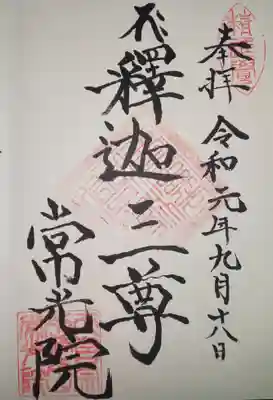 奉拝
令和元年九月十八日
釋迦三尊
常光院